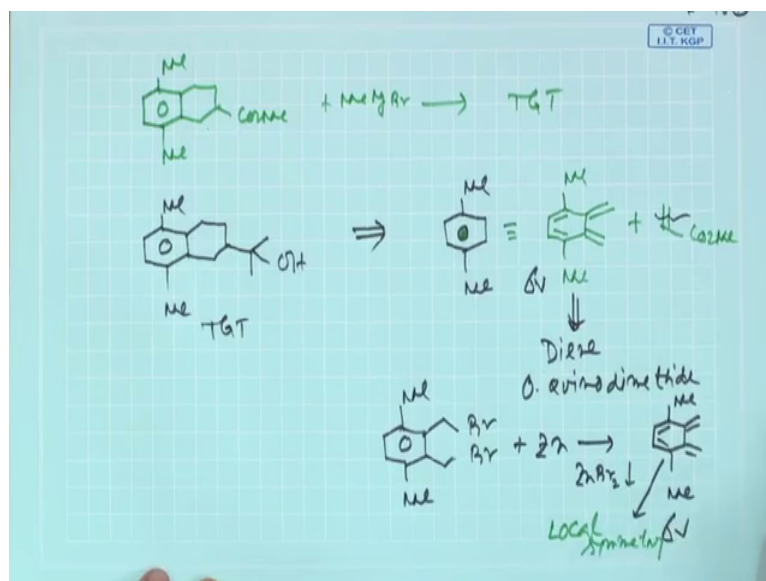 © CET
I.I.T. KGP
Me
CO2Me + MeMgBr → TGT
Me
Me
OH ⇒
Me
TGT
Me
≡
Me
Me
+
CO2Me
Me
ΔV
⇓
Diene
O. quinodimethide
Me
Br
Br + Zn →
ZnBr2 ↓
Me
Me
Me
LOCAL
Symmetry ΔV